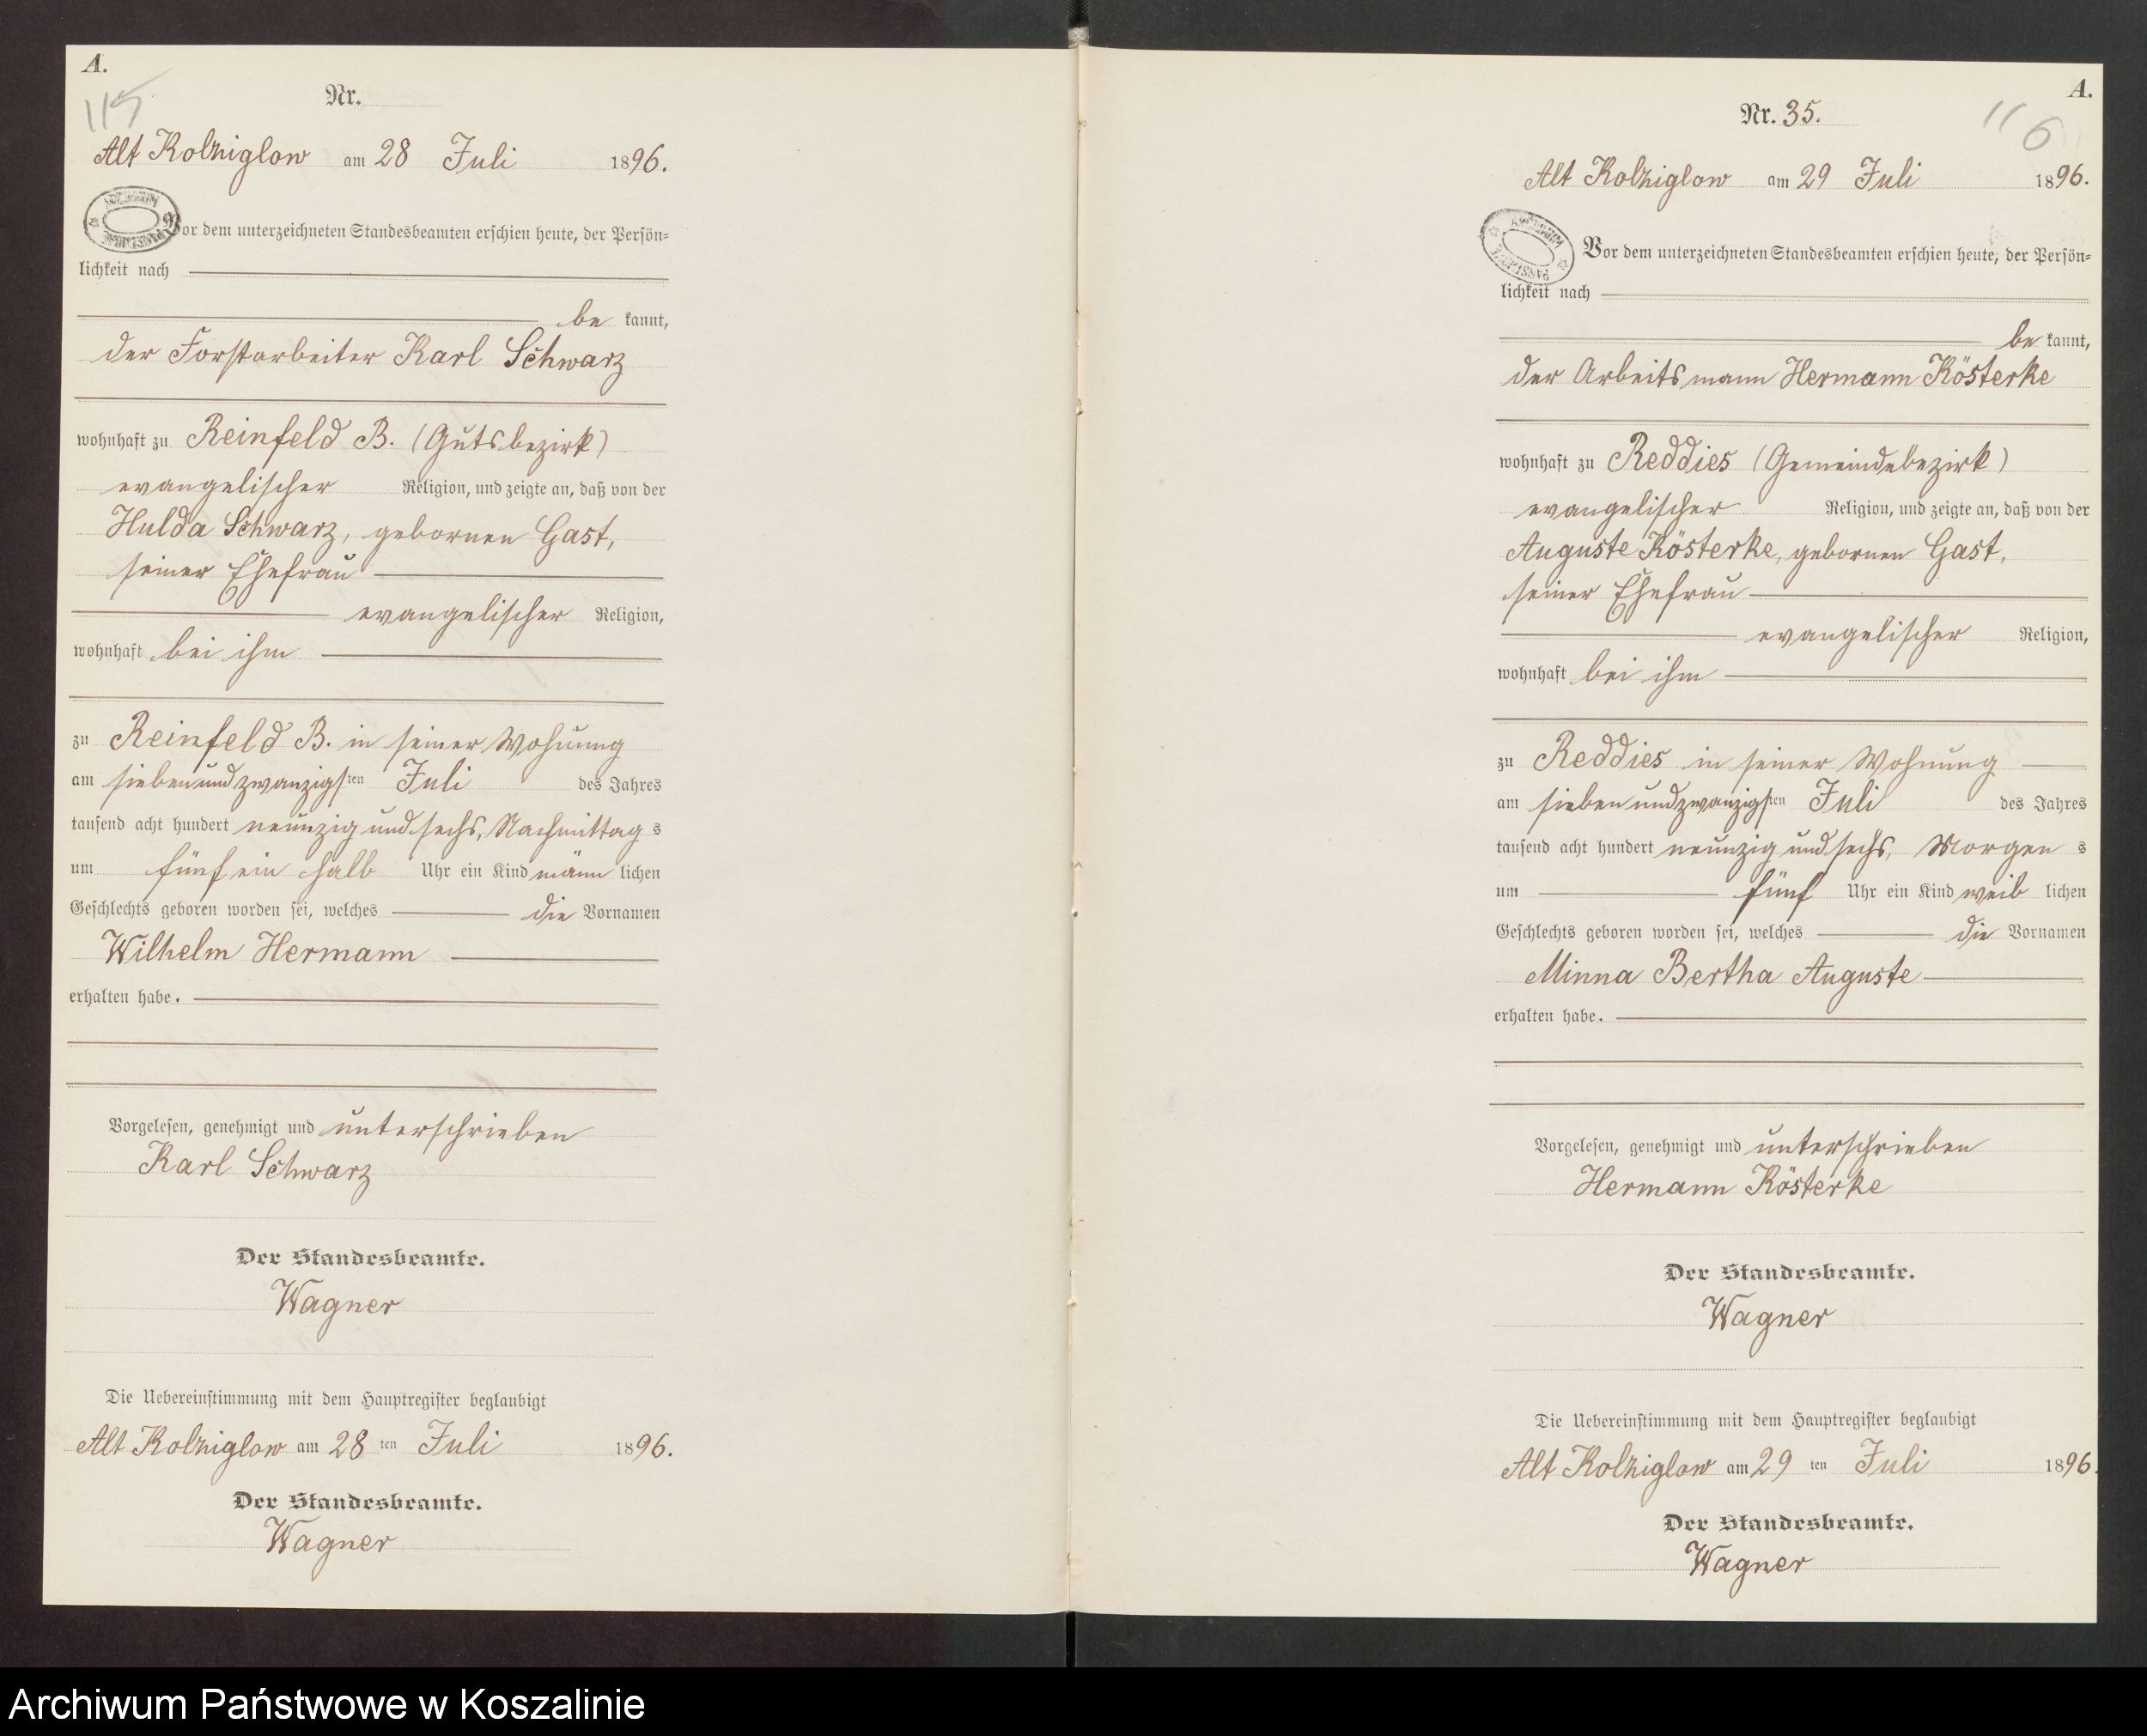 A.
115
Nr.
Alt Kolziglow am 28 Juli 1896.
Vor dem unterzeichneten Standesbeamten erschien heute, der Persön=
lichkeit nach
be kannt,
der Forstarbeiter Karl Schwarz
wohnhaft zu Reinfeld B. (Gutsbezirk)
evangelischer Religion, und zeigte an, daß von der
Hulda Schwarz, gebornen Gast,
seiner Ehefrau
evangelischer Religion,
wohnhaft bei ihm
zu Reinfeld B. in seiner Wohnung
am siebenundzwanzigsten Juli des Jahres
tausend acht hundert neunzig und sechs, Nachmittag s
um fünf ein halb Uhr ein Kind männ lichen
Geschlechts geboren worden sei, welches die Vornamen
Wilhelm Hermann
erhalten habe.
Vorgelesen, genehmigt und unterschrieben
Karl Schwarz
Der Standesbeamte.
Wagner
Die Uebereinstimmung mit dem Hauptregister beglaubigt
Alt Kolziglow am 28 ten Juli 1896.
Der Standesbeamte.
Wagner
A.
116
Nr. 35.
Alt Kolziglow am 29 Juli 1896.
ARCHIWUM PAŃSTWOWE
Vor dem unterzeichneten Standesbeamten erschien heute, der Persön=
lichkeit nach
be kannt,
der Arbeitsmann Hermann Kösterke
wohnhaft zu Reddies (Gemeindebezirk)
evangelischer Religion, und zeigte an, daß von der
Auguste Kösterke, gebornen Gast,
seiner Ehefrau
evangelischer Religion,
wohnhaft bei ihm
zu Reddies in seiner Wohnung
am siebenundzwanzigsten Juli des Jahres
tausend acht hundert neunzig und sechs, Morgen s
um fünf Uhr ein Kind weib lichen
Geschlechts geboren worden sei, welches die Vornamen
Minna Bertha Auguste
erhalten habe.
Vorgelesen, genehmigt und unterschrieben
Hermann Kösterke
Der Standesbeamte.
Wagner
Die Uebereinstimmung mit dem Hauptregister beglaubigt
Alt Kolziglow am 29 ten Juli 1896.
Der Standesbeamte.
Wagner
Archiwum Państwowe w Koszalinie